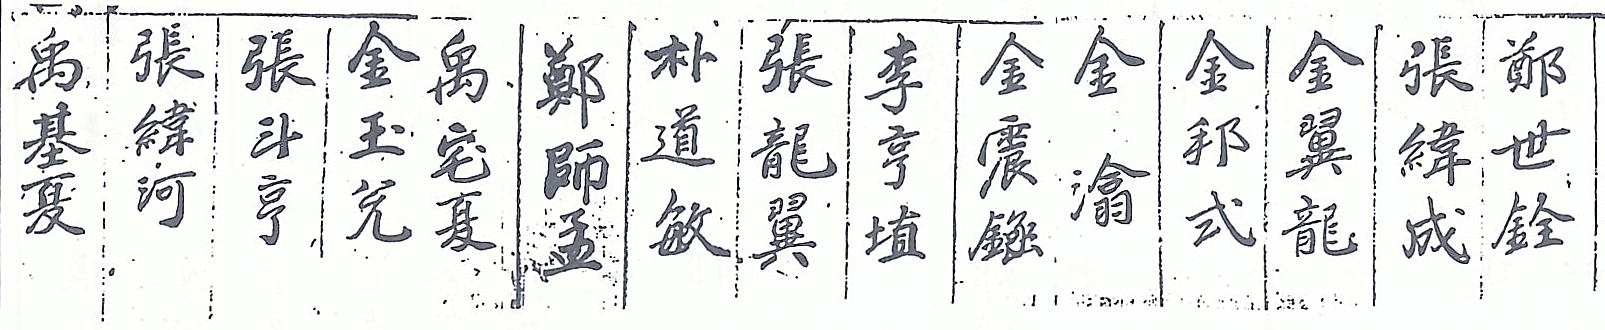 鄭世銓
張緯成
金翼龍
金邦式
金潝
金震鏸
李亨埴
張龍翼
朴道敏
鄭師孟
禹宅夏
金玉兌
張斗亨
張緯河
禹基夏